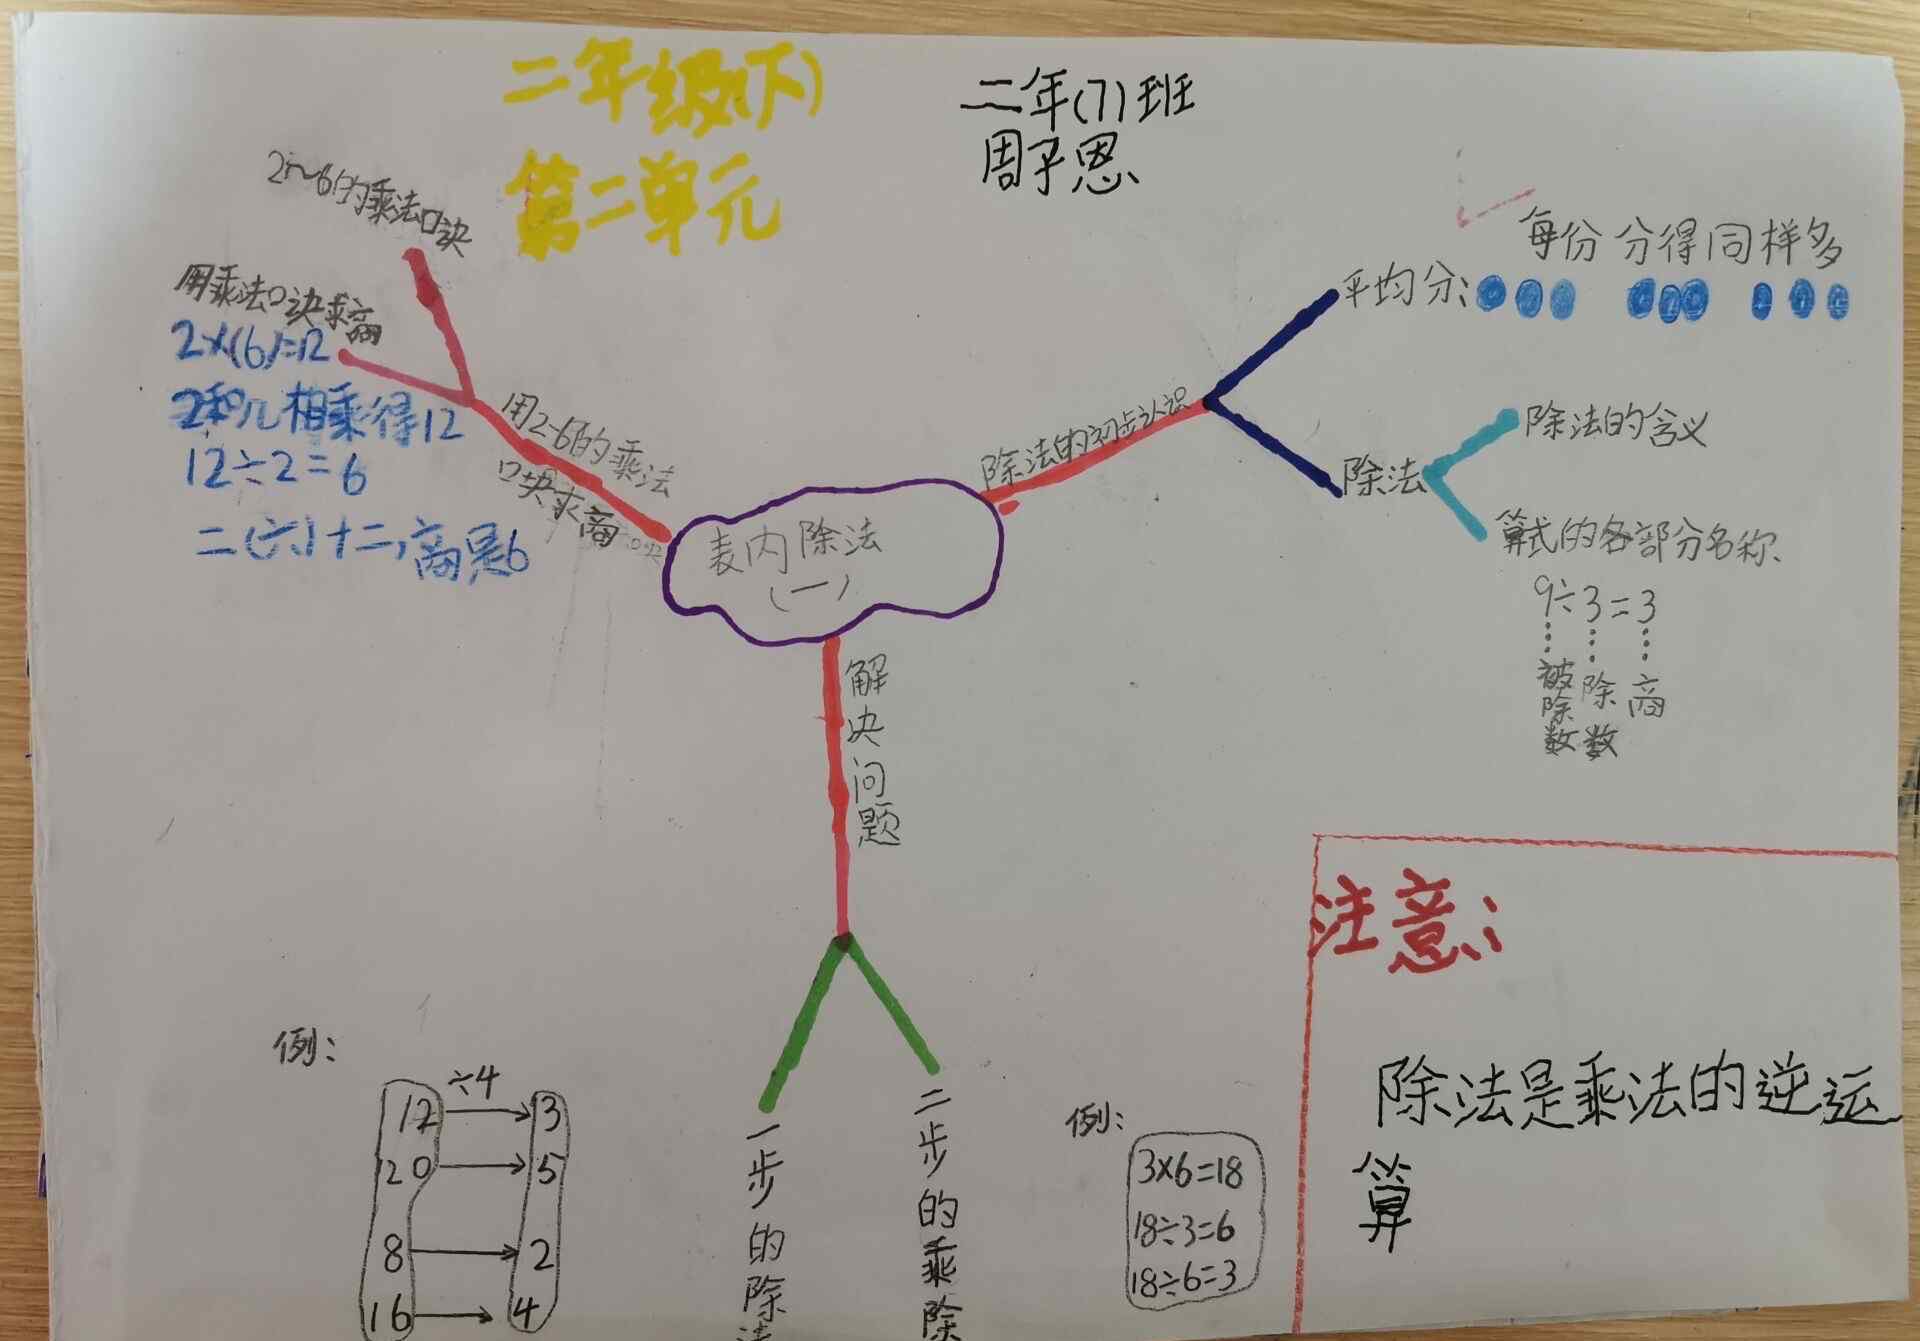 二年级(下)
第二单元
二年(7)班
周子恩
2~6的乘法口诀
用乘法口诀求商
2×(6)=12
2和几相乘得12
12÷2=6
二(六)十二,商是6
用2-6的乘法
口块求商
表内除法
(一)
除法的初步认识
平均分:
每份分得同样多
除法
除法的含义
算式的各部分名称
9÷3=3
被除数
除数
商
解决问题
一步的除法
二步的乘除
例:
÷4
12 3
20 5
8 2
16 4
例:
3×6=18
18÷3=6
18÷6=3
注意:
除法是乘法的逆运
算